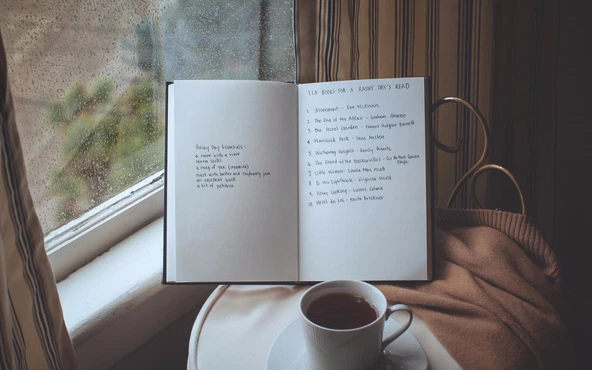 Rainy Day Essentials:
a room with a view
warm socks
a mug of tea
toast with butter and raspberry jam
an excellent book
a bit of patience
TEN BOOKS FOR A RAINY DAY'S READ
1. Atonement - Ian McEwan
2. The End of the Affair - Graham Greene
3. The Secret Garden - Frances Hodgson Burnett
4. Mansfield Park - Jane Austen
5. Wuthering Heights - Emily Brontë
6. The Hound of the Baskervilles - Sir Arthur Conan
Doyle
7. Little Women - Louisa May Alcott
8. To the Lighthouse - Virginia Woolf
9. Home Cooking - Laurie Colwin
10. Hotel du Lac - Anita Brookner